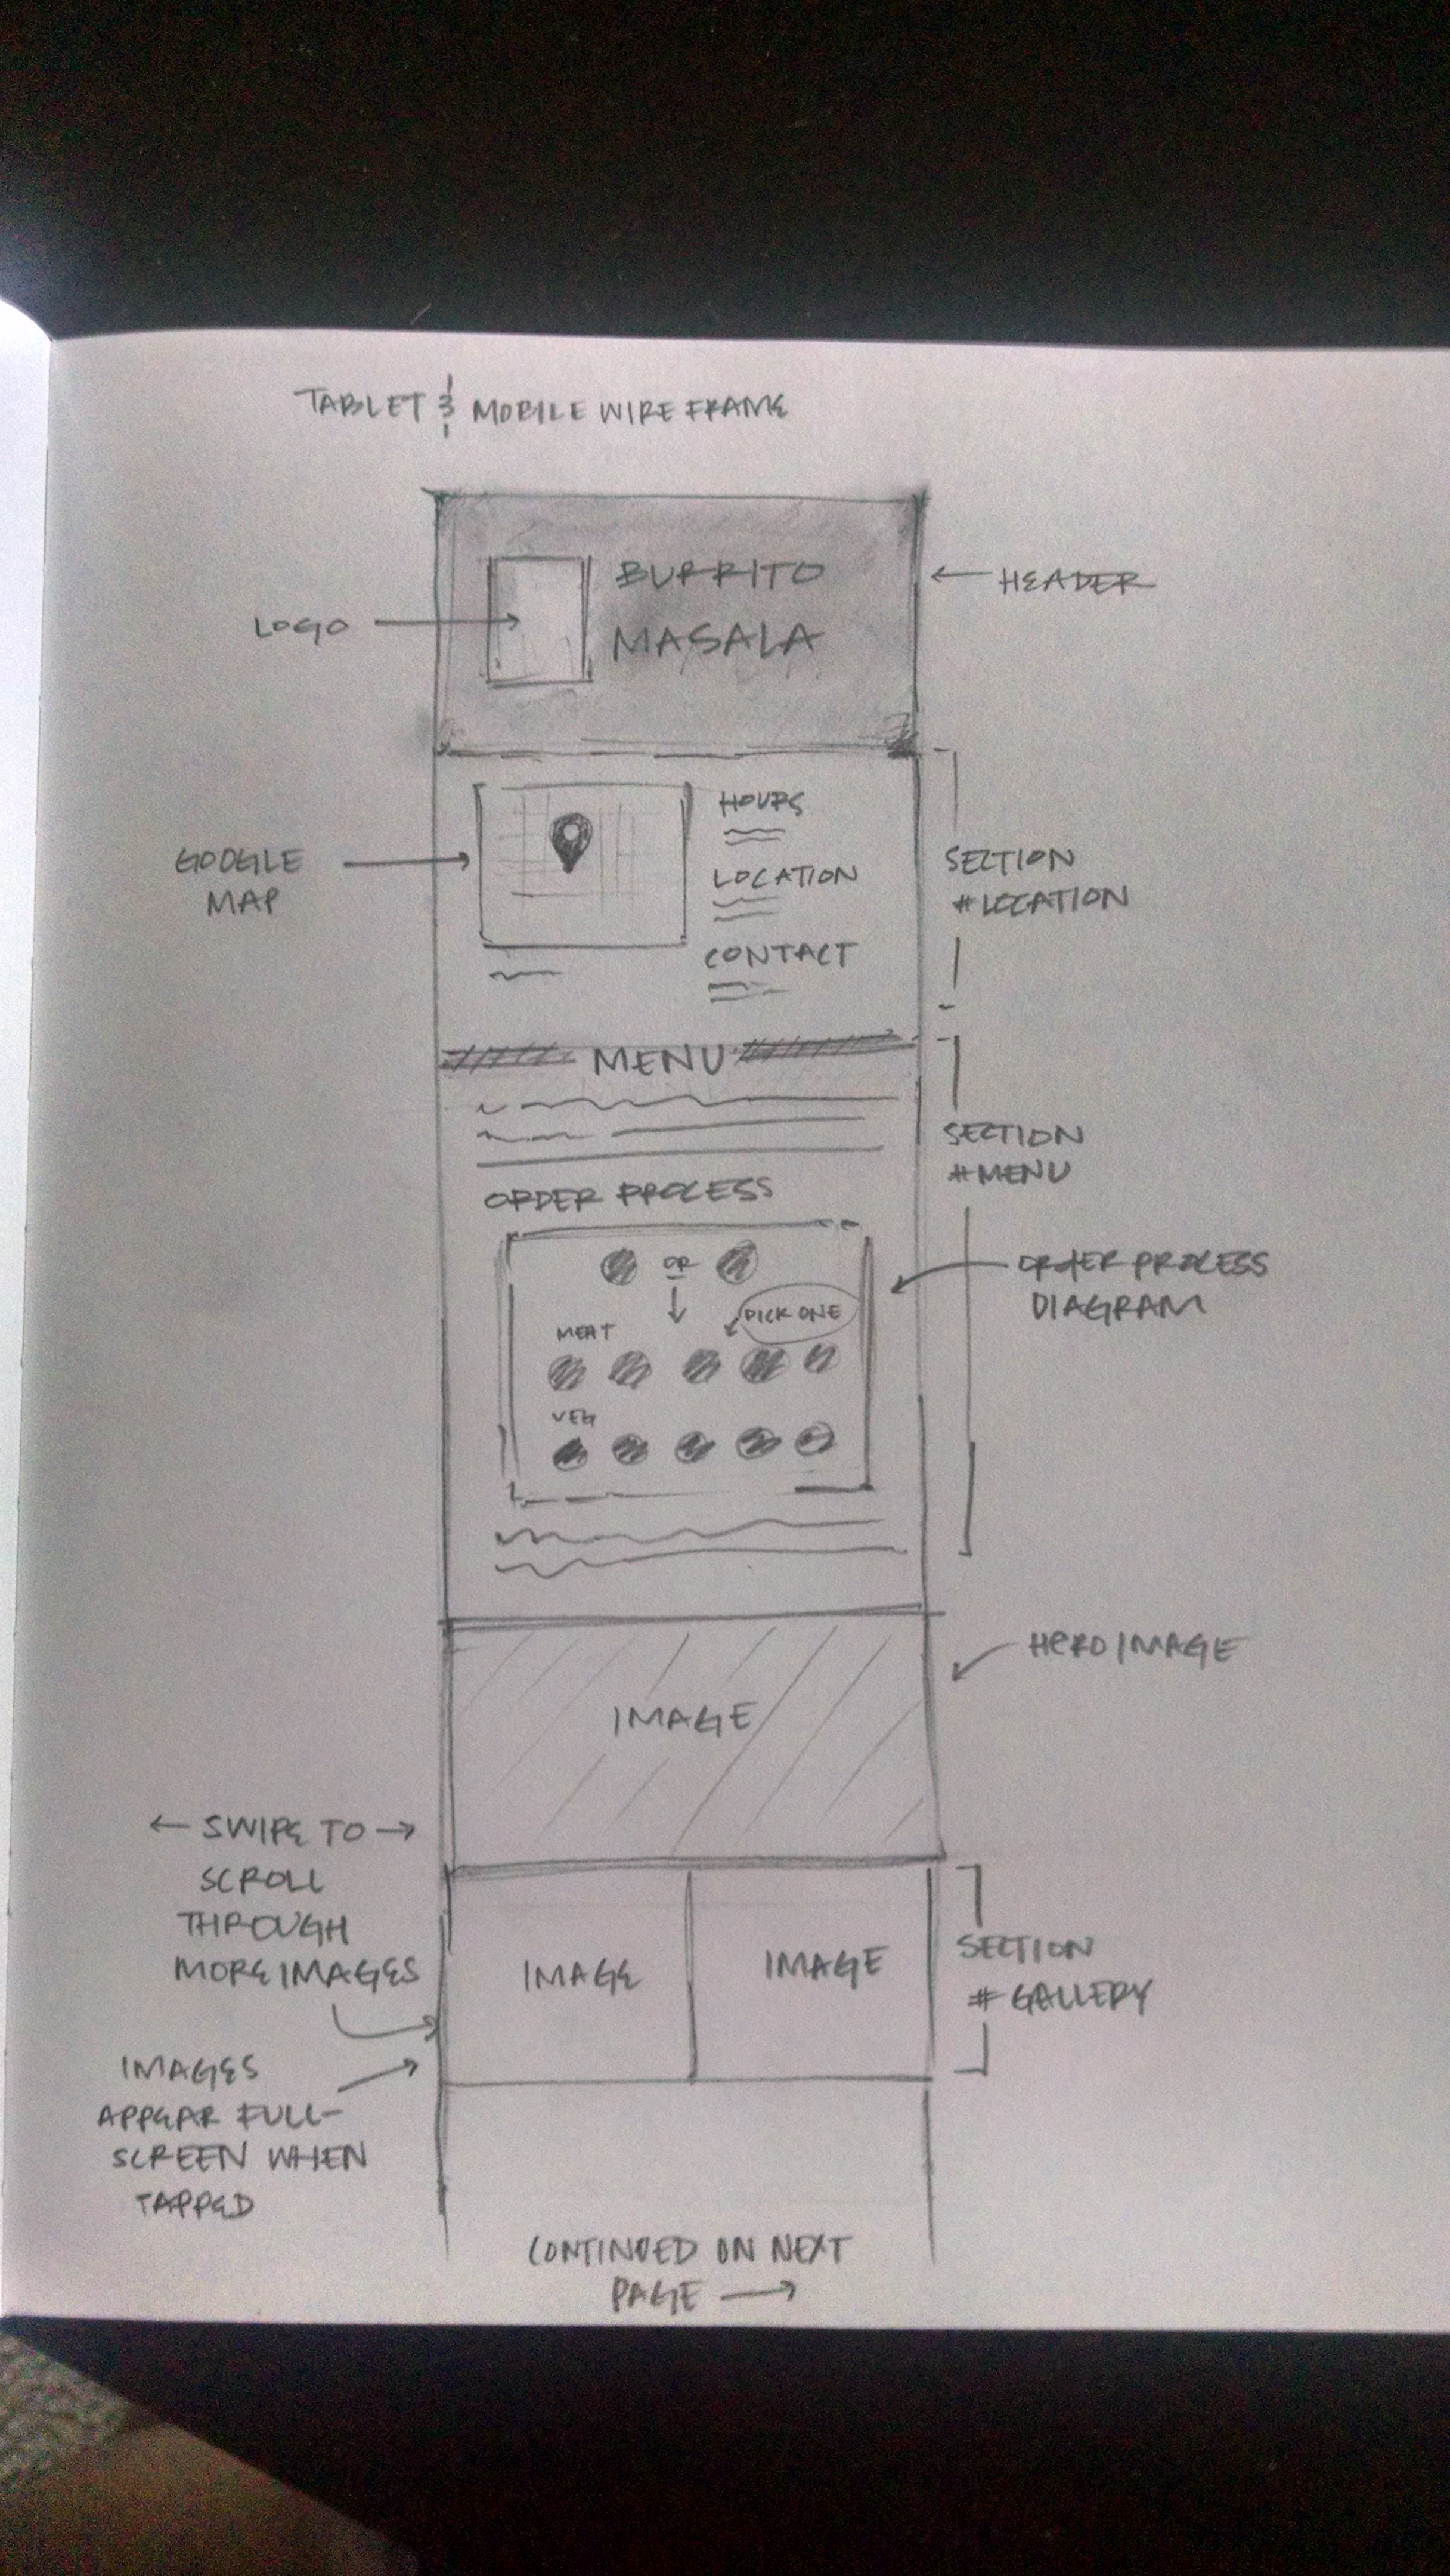 TABLET & MOBILE WIREFRAME
BURRITO
MASALA
← HEADER
LOGO
HOURS
LOCATION
CONTACT
GOOGLE
MAP
SECTION
#LOCATION
MENU
SECTION
#MENU
ORDER PROCESS
OR
PICK ONE
MEAT
VEG
ORDER PROCESS
DIAGRAM
IMAGE
HERO IMAGE
← SWIPE TO →
SCROLL
THROUGH
MORE IMAGES
IMAGE
IMAGE
SECTION
#GALLERY
IMAGES
APPEAR FULL-
SCREEN WHEN
TAPPED
CONTINUED ON NEXT
PAGE →